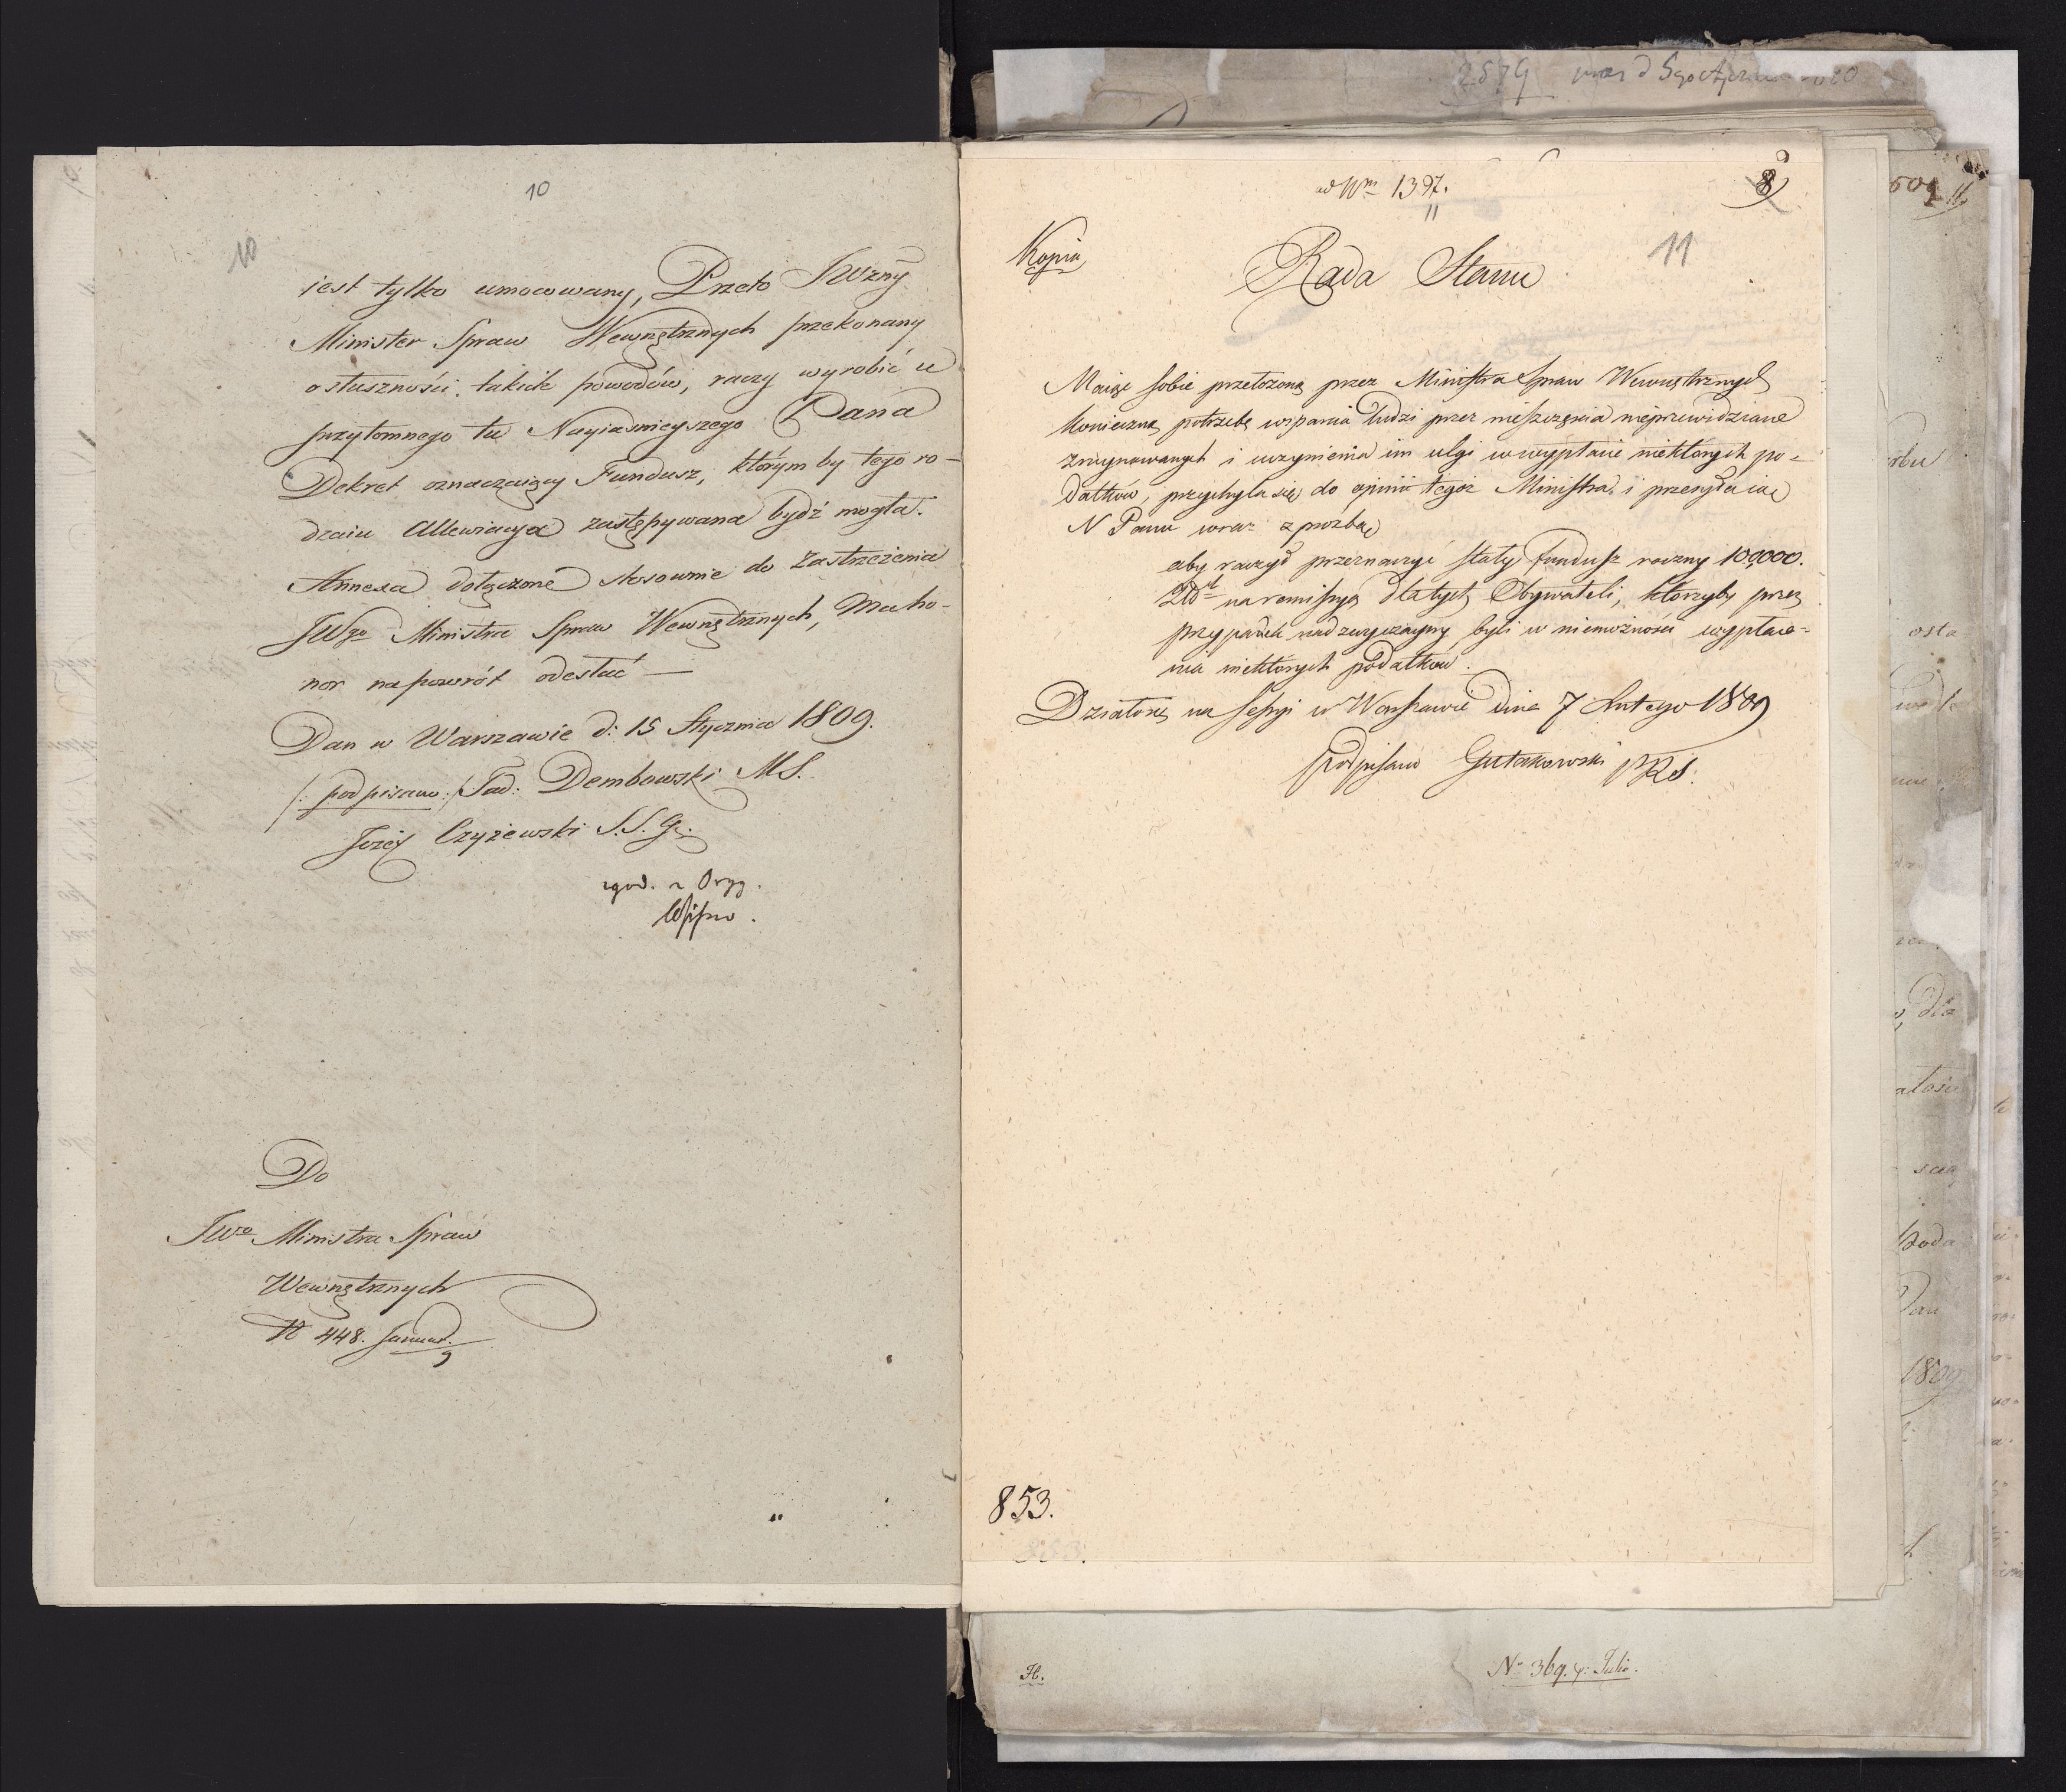 10
10
iest tylko umocowany, Przeto JWżny
Minister Spraw Wewnętrznych przekonany
o słuszności takich powodów, raczy wyrobić u
przytomnego tu Nayiaśnieyszego Pana
Dekret oznaczaiący Fundusz, którym by tego ro-
dzaiu Allewiacya zastępywana bydź mogła.
Annexa dołączone stosownie do Zastrzeżenia
JWgo Ministra Spraw Wewnętrznych, ma ho-
nor napowrót odesłać —
Dan w Warszawie d: 15 Stycznia 1809.
/: podpisano :/ Tad: Dembowski MS.
Jozef Czyżewski S.S.G.
zgod. z Oryg.
Do
JWo Ministra Spraw
Wewnętrznych
N 448. Januar.
9
ad Nrm 1397.
8
11
Kopia
Rada Stanu
Maiąc sobie przełożoną przez Ministra Spraw Wewnętrznych
konieczną potrzebę wsparcia ludzi przez nieszczęścia nieprzewidziane
zruynowanych i uczynienia im ulgi w wypłacie niektórych po-
datków, przychyla się do opinii tegoż Ministra i przesyła ią
N Panu wraz z prośbą
aby raczył przeznaczyć stały fundusz roczny 100,000.
Złł na remissyą dla tych Obywateli, którzyby przez
przypadek nadzwyczayny byli w niemożności wypłace-
nia niektórych podatków.
Działo się na Sessyi w Warszawie dnia 7 Lutego 1809
podpisano Gutakowski PRS.
853.
H.
No 369. 9: Julio.
2579